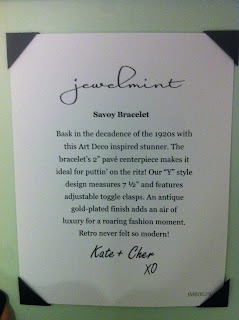 jewelmint
Savoy Bracelet
Bask in the decadence of the 1920s with
this Art Deco inspired stunner. The
bracelet's 2" pavé centerpiece makes it
ideal for puttin' on the ritz! Our "Y" style
design measures 7 ½" and features
adjustable toggle clasps. An antique
gold-plated finish adds an air of
luxury for a roaring fashion moment.
Retro never felt so modern!
Kate + Cher
XO